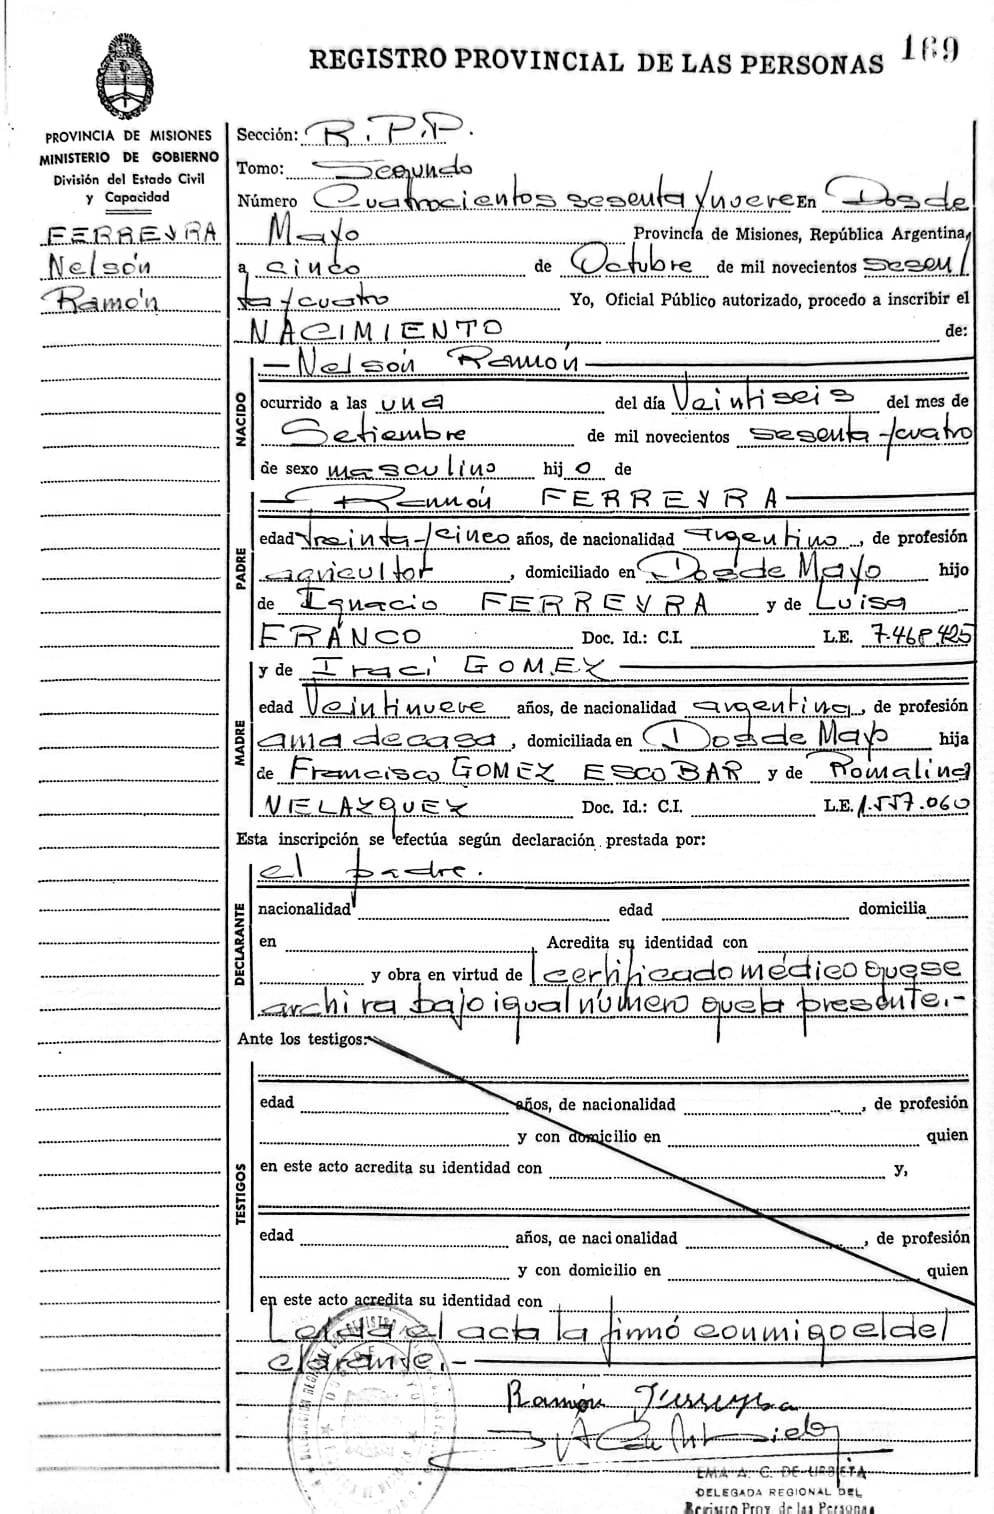 REGISTRO PROVINCIAL DE LAS PERSONAS 169
PROVINCIA DE MISIONES
MINISTERIO DE GOBIERNO
División del Estado Civil
y Capacidad
FERREYRA
Nelsón
Ramón
Sección: R.P.P.
Tomo: Segundo
Número Cuatrocientos sesenta y nueve En Dos de
Mayo Provincia de Misiones, República Argentina,
a cinco de Octubre de mil novecientos sesen/
ta y cuatro Yo, Oficial Público autorizado, procedo a inscribir el
NACIMIENTO de:
NACIDO
—Nelsón Ramón—
ocurrido a las una del día Veintiseis del mes de
Setiembre de mil novecientos sesenta y cuatro
de sexo masculino hij o de
— Ramón FERREYRA —
PADRE
edad treinta y cinco años, de nacionalidad argentino, de profesión
agricultor, domiciliado en Dos de Mayo hijo
de Ignacio FERREYRA y de Luisa
FRANCO Doc. Id.: C.I. L.E. 7.468.425
y de Iraci GOMEZ —
MADRE
edad Veintinueve años, de nacionalidad argentina, de profesión
ama de casa, domiciliada en Dos de Mayo hija
de Francisco GOMEZ ESCOBAR y de Romalina
VELAZQUEZ Doc. Id.: C.I. L.E. 1.557.060
Esta inscripción se efectúa según declaración prestada por:
el padre.
DECLARANTE
nacionalidad edad domicilia
en Acredita su identidad con
y obra en virtud de certificado médico que se
archiva bajo igual número que la presente.-
Ante los testigos:
TESTIGOS
edad años, de nacionalidad , de profesión
y con domicilio en quien
en este acto acredita su identidad con y,
edad años, de nacionalidad , de profesión
y con domicilio en quien
en este acto acredita su identidad con
Leida el acta la firmó conmigo el de/
clarante.-
Ramón Ferreyra
EMA A. C. DE URBIETA
DELEGADA REGIONAL DEL
Registro Prov. de las Personas